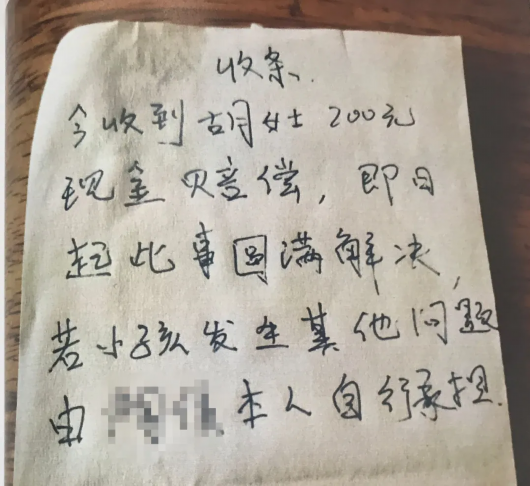 收条.
今收到胡女士200元
现金赔偿,即日
起此事圆满解决,
若小孩发生其他问题
由本人自行承担.